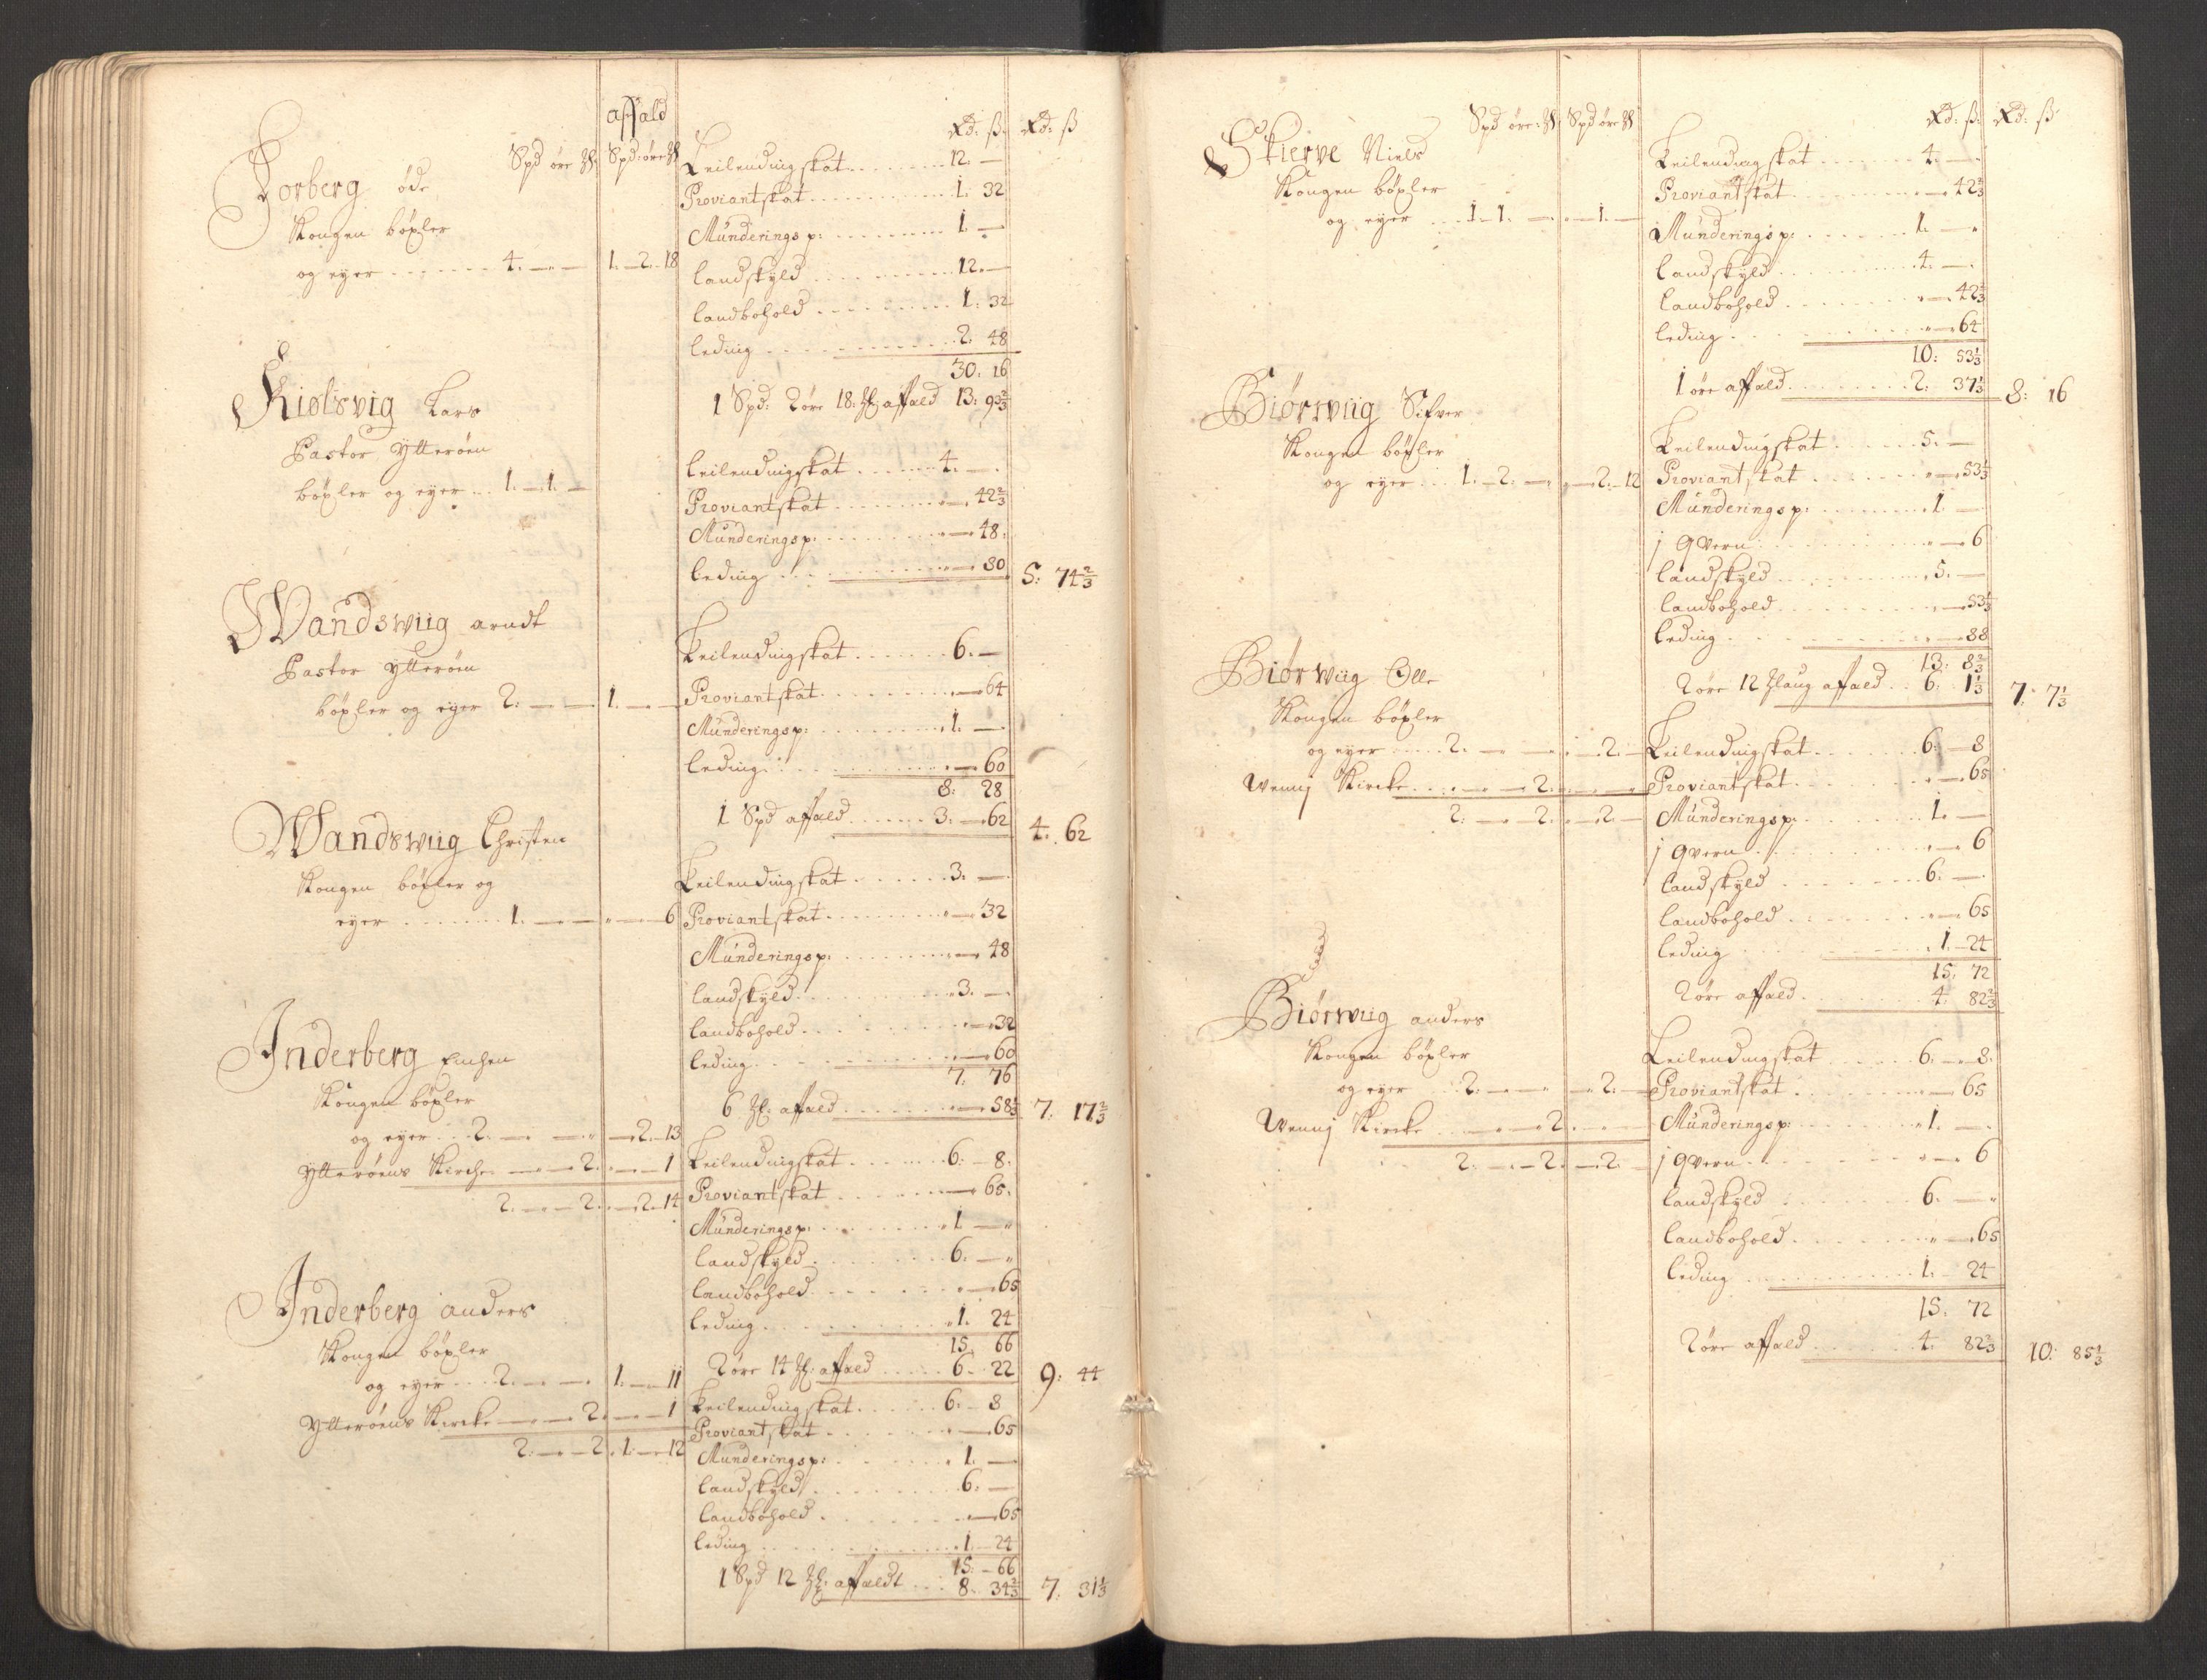 affald
Spd øre Spd: øre Rd: ß Rd: ß
Forberg øde
Kongen böxler
og eyer 4. 1. 2. 18
Leilendingskat 12.
Proviantskat 1. 32
Munderings p: 1.
landskyld 12.
landbohold 1. 32
leding 2. 48
30. 16
1 Spd: 2 øre 18: affald 13: 93 2/3
Kiølsvig Lars
Pastor Ytterøen
böxler og eyer 1. 1.
Leilendingskat 4.
Proviantskat 42 2/3
Munderings p: 48.
leding 80 5: 74 2/3
Wandswiig arndt
Pastor Ytterøen
böxler og eyer 2. 1.
Leilendingskat 6.
Proviantskat 64
Munderings p: 1.
leding 60
8: 28
1 Spd affald 3. 62 4. 62
Wandswiig Christen
Kongen böxler og
eyer 1. 6
Leilendingskat 3.
Proviantskat 32
Munderings p: 48
landskyld 3.
landbohold 32
leding 60
7. 76
6 affald 58 1/3 7. 17 2/3
Inderberg
Kongen böxler
og eyer 2. 2. 13
Ytterøens Kirche 2. 1
2. 2. 2. 14
Leilendingskat 6. 8.
Proviantskat 65.
Munderings p: 1.
landskyld 6.
landbohold 65
leding 1. 24
15. 66
2 øre 14 affald 6. 22 9: 44
Inderberg anders
Kongen böxler
og eyer 2. 1. 11
Ytterøens Kircke 2. 1
2. 2. 1. 12
Leilendingskat 6. 8
Proviantskat 65
Munderings p: 1.
landskyld 6.
landbohold 65
leding 1. 24
15. 66
1 Spd 12 affaldt 8. 34 2/3 7. 31 1/3
Spd øre Spd øre Rd: ß: Rd: ß
Skierve Niels
Kongen böxler
og eyer 1. 1. 1.
Leilendingskat 4.
Proviantskat 42 2/3
Munderings p: 1.
landskyld 4.
landbohold 42 2/3
leding 64
10: 53 1/3
1 øre affald 2. 37 1/3 8: 16
Biörswiig Sifver
Kongen böxler
og eyer 1. 2. 2. 12
Leilendingskat 5.
Proviantskat 53 1/3
Munderings p: 1
1 qvern 6
landskyld 5.
landbohold 53 1/3
leding 88
13. 8 2/3
2 øre 12 affald 6. 1 1/3 7. 7 1/3
Biörwiig Olle
Kongen böxler
og eyer 2. 2.
Kircke 2.
2. 2. 2.
Leilendingskat 6. 8
Proviantskat 65
Munderings p: 1.
1 qvern 6
landskyld 6.
landbohold 65
leding 1. 24
15. 72
2 øre affald 4. 82 2/3
Biörwiig anders
Kongen böxler
og eyer 2. 2.
Kircke 2.
2. 2. 2.
Leilendingskat 6. 8.
Proviantskat 65
Munderings p: 1.
1 qvern 6
landskyld 6.
landbohold 65
leding 1. 24
15. 72
2 øre affald 4. 82 2/3 10: 85 1/3